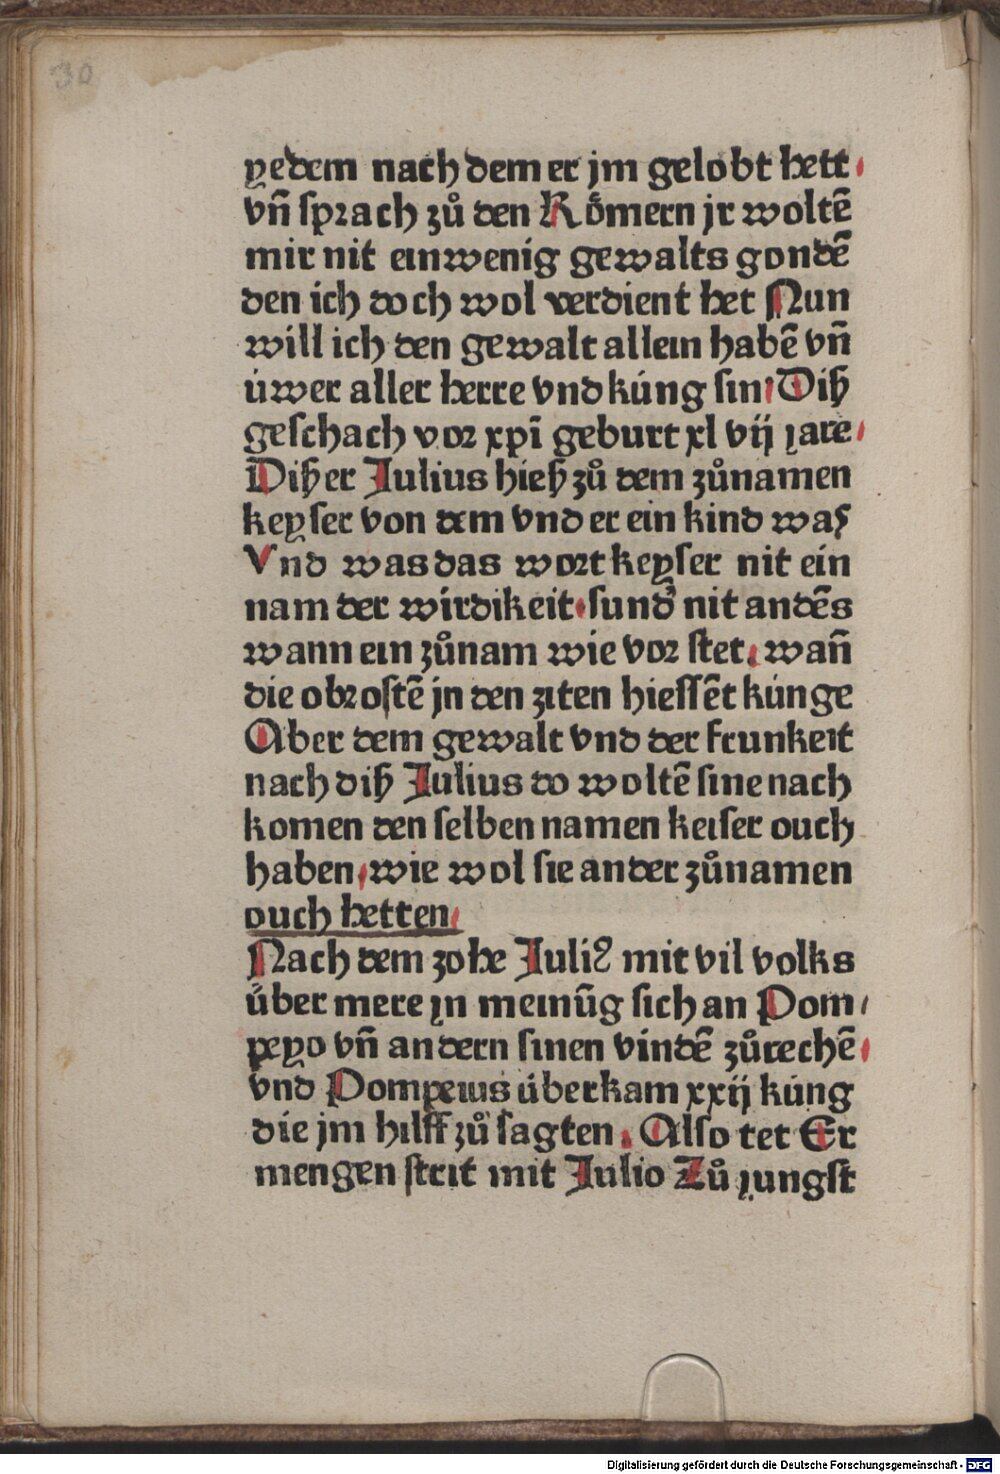 30
yedem nach dem er jm gelobt hett
vn̄ sprach zů den Rőmern jr woltē
mir nit ein wenig gewalts gondē
den ich doch wol verdient het Nun
will ich den gewalt allein habē vn̄
úwer aller herre vnd kúng sin Diß
geschach vor xpī geburt xl vij jare
Dißer Julius hieß zů dem zůnamen
keyser von dem vnd er ein kind was
Vnd was das wort keyser nit ein
nam der wirdikeit sund̛ nit andēs
wann ein zůnam wie vor stet. wan̄
die obrostē jn den ziten hiessēt kúnge
Aber dem gewalt vnd der frunkeit
nach diß Julius do woltē sine nach
komen den selben namen keiser ouch
haben wie wol sie ander zůnamen
ouch hetten
Nach dem zohe Juliꝰ mit vil volks
úber mere jn meinūg sich an Pom
peyo vn̄ andern sinen vindē zůrechē
vnd Pompeius úberkam xxij kúng
die jm hilff zů sagten. Also tet Er
mengen strit mit Julio Zů jungst
Digitalisierung gefördert durch die Deutsche Forschungsgemeinschaft - DFG